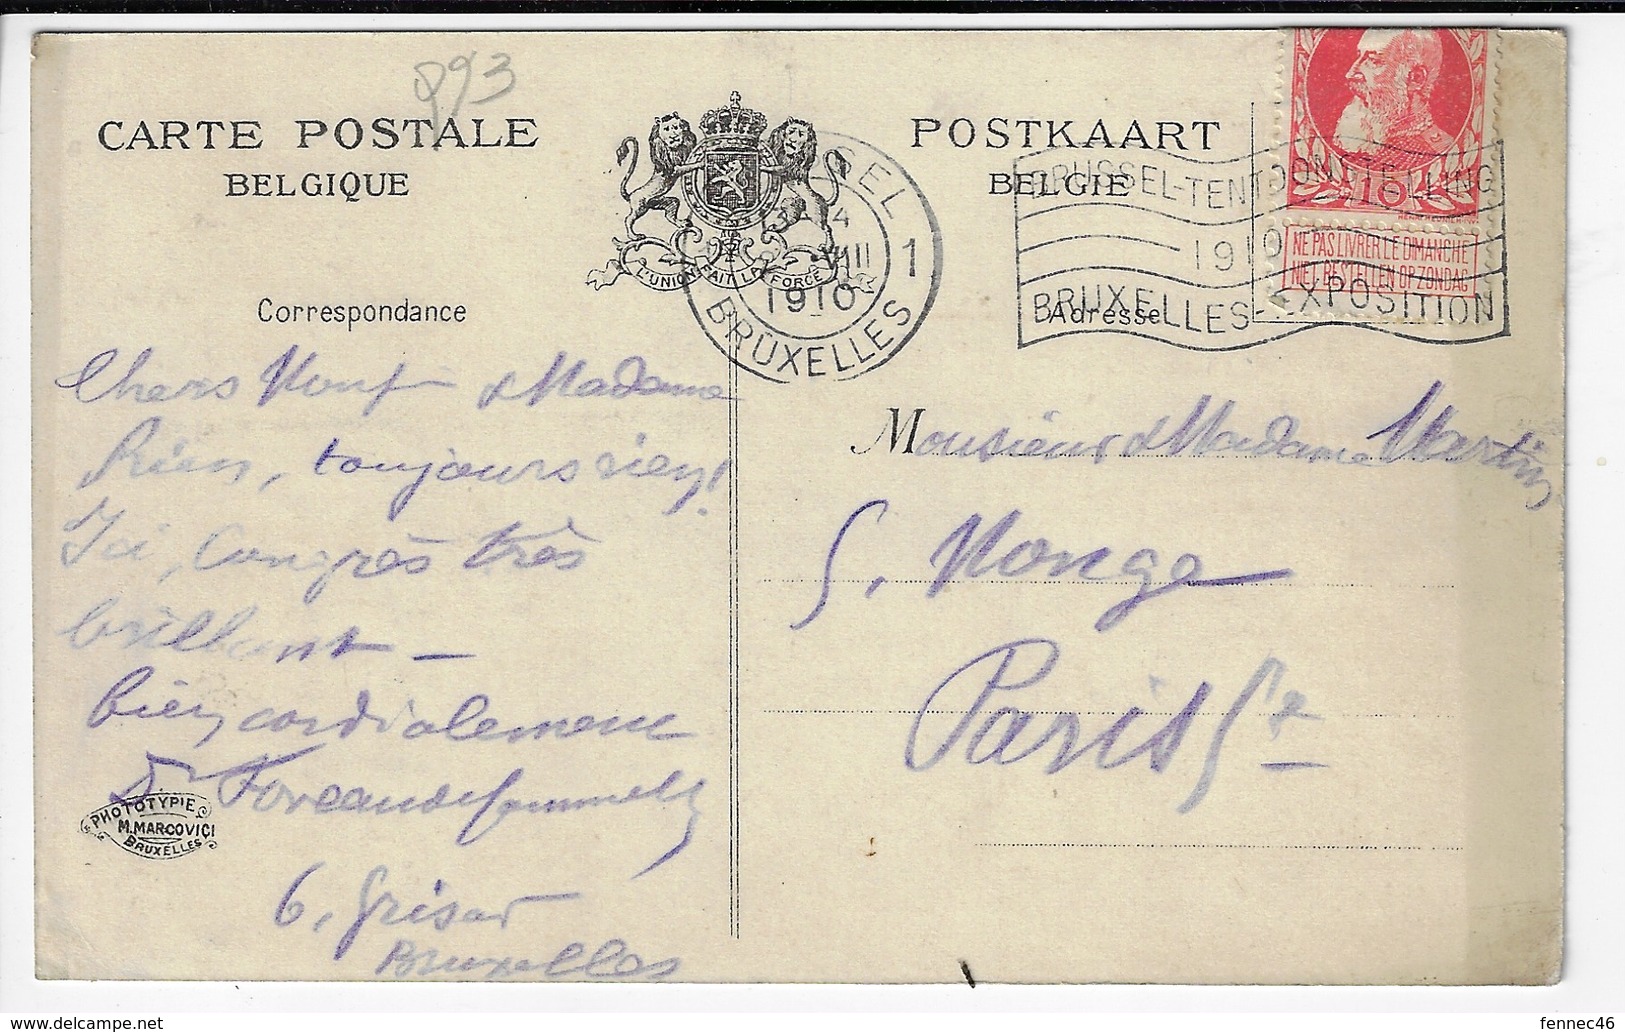 893
CARTE POSTALE
BELGIQUE
POSTKAART
BELGIE
L'UNION FAIT LA FORCE
BRUSSEL 1
4
VIII
1910
BRUXELLES
BRUSSEL-TENTOONSTELLING
1910
BRUXELLES-EXPOSITION
10
NE PAS LIVRER LE DIMANCHE
NIET BESTELLEN OP ZONDAG
Correspondance
Adresse
Chers Monsr & Madame
Rien, toujours rien!
Ici, Congrès très
brillant —
bien cordialement
Dr
6, Grisar
Bruxelles
PHOTOTYPIE
M. MARCOVICI
BRUXELLES
Monsieur & Madame Martin
5, Monge
Paris 5e
fennec46